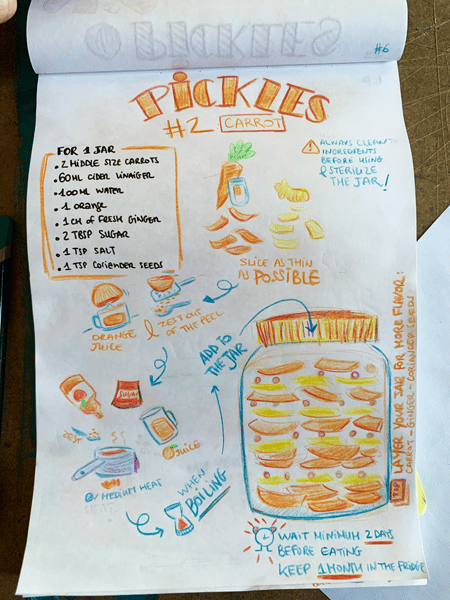 PICKLES
#6
PICKLES
#2 CARROT
FOR 1 JAR
• 2 MIDDLE SIZE CARROTS
• 60ML CIDER VINAIGER
• 100ML WATER
• 1 ORANGE
• 1 CM OF FRESH GINGER
• 2 TBSP SUGAR
• 1 TSP SALT
• 1 TSP CORIENDER SEEDS
ALWAYS CLEAN
INGREDIENTS
BEFORE USING
& STERILIZE
THE JAR!
SLICE AS THIN
AS POSSIBLE
ORANGE
JUICE
& ZEST OUT
OF THE PEEL
ADD TO
THE JAR
SUGAR
ZEST
JUICE
@ MEDIUM HEAT
WHEN
BOILING
TIP LAYER YOUR JAR FOR MORE FLAVOR:
CARROT - GINGER - CORIANDER SEEDS
WAIT MINIMUM 2 DAYS
BEFORE EATING
KEEP 1 MONTH IN THE FRIDGE